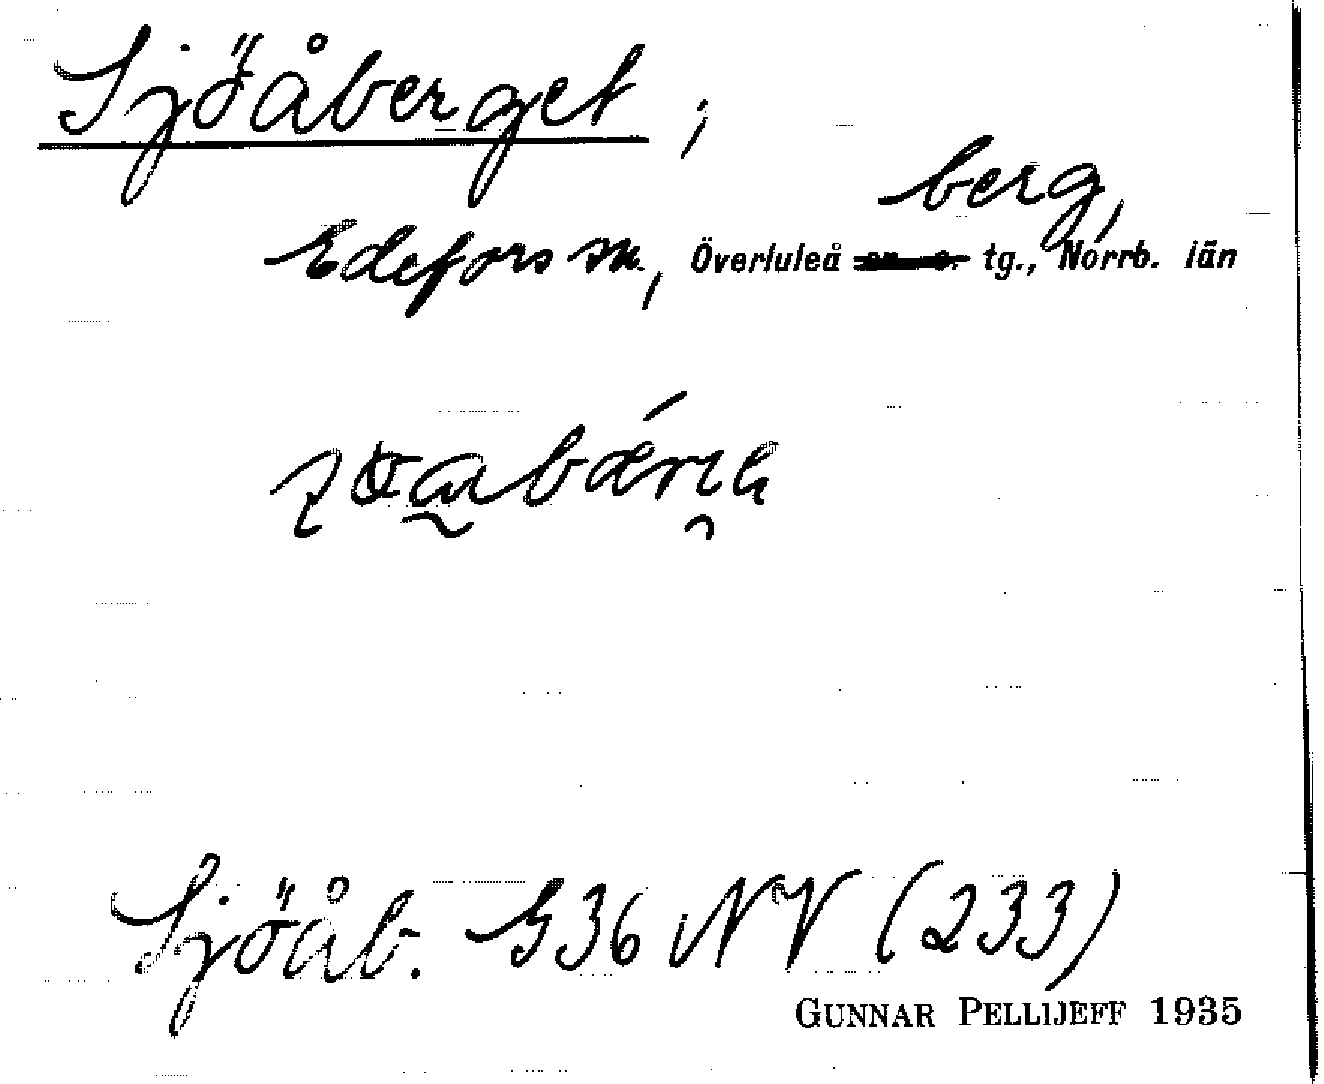 Sjöåberget,
berg,
Edefors sn, Överluleå tg., Norrb. län
Sjöåb. G36 NV (233)
GUNNAR PELLIJEFF 1935